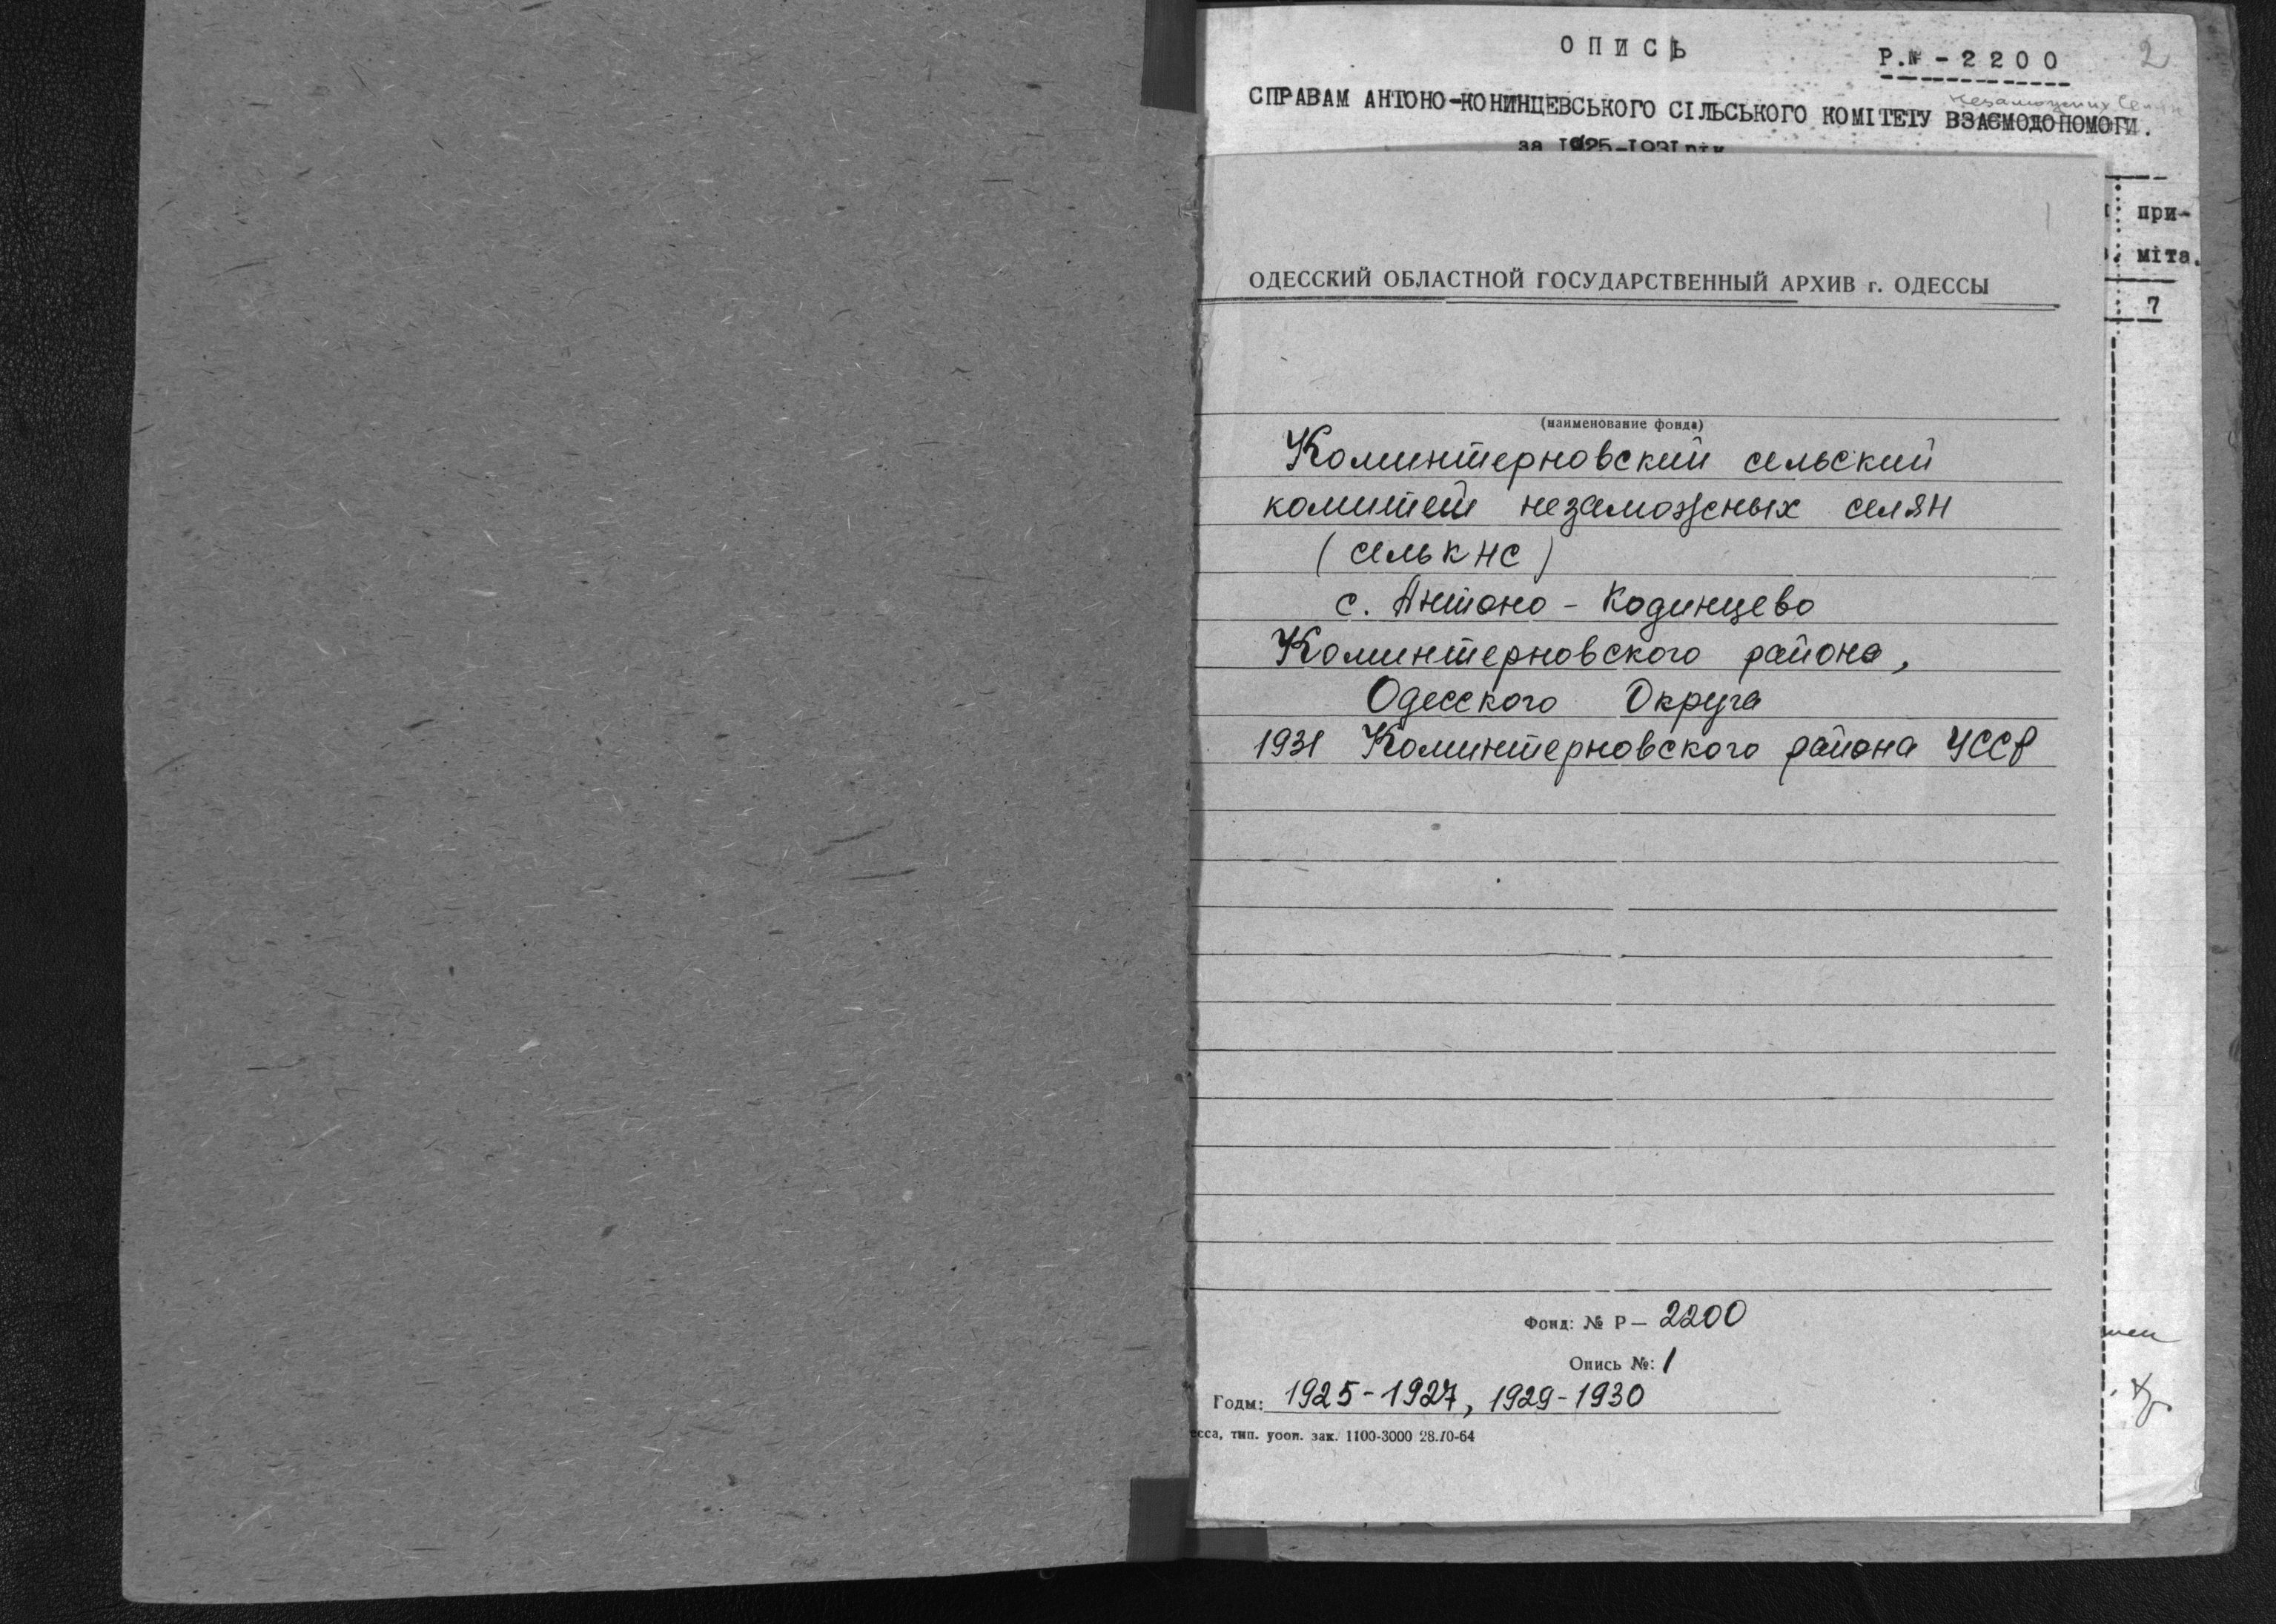 ОПИСЬ
Р.№-2200
2
незаможних селян
СПРАВАМ АНТОНО-КОНИНЦЕВСЬКОГО СІЛЬСЬКОГО КОМІТЕТУ ВЗАЄМОДОПОМОГИ.
за 1925-1931 рік
при-
міта.
7
ОДЕССКИЙ ОБЛАСТНОЙ ГОСУДАРСТВЕННЫЙ АРХИВ г. ОДЕССЫ
(наименование фонда)
Коминтерновский сельский
комитет незаможных селян
(селькнс)
с. Антоно-Кодинцево
Коминтерновского района,
Одесского Округа
1931 Коминтерновского района УССР
Фонд: № Р— 2200
Опись №: 1
Годы: 1925-1927, 1929-1930
есса, тип. уооп. зак. 1100-3000 28.10-64